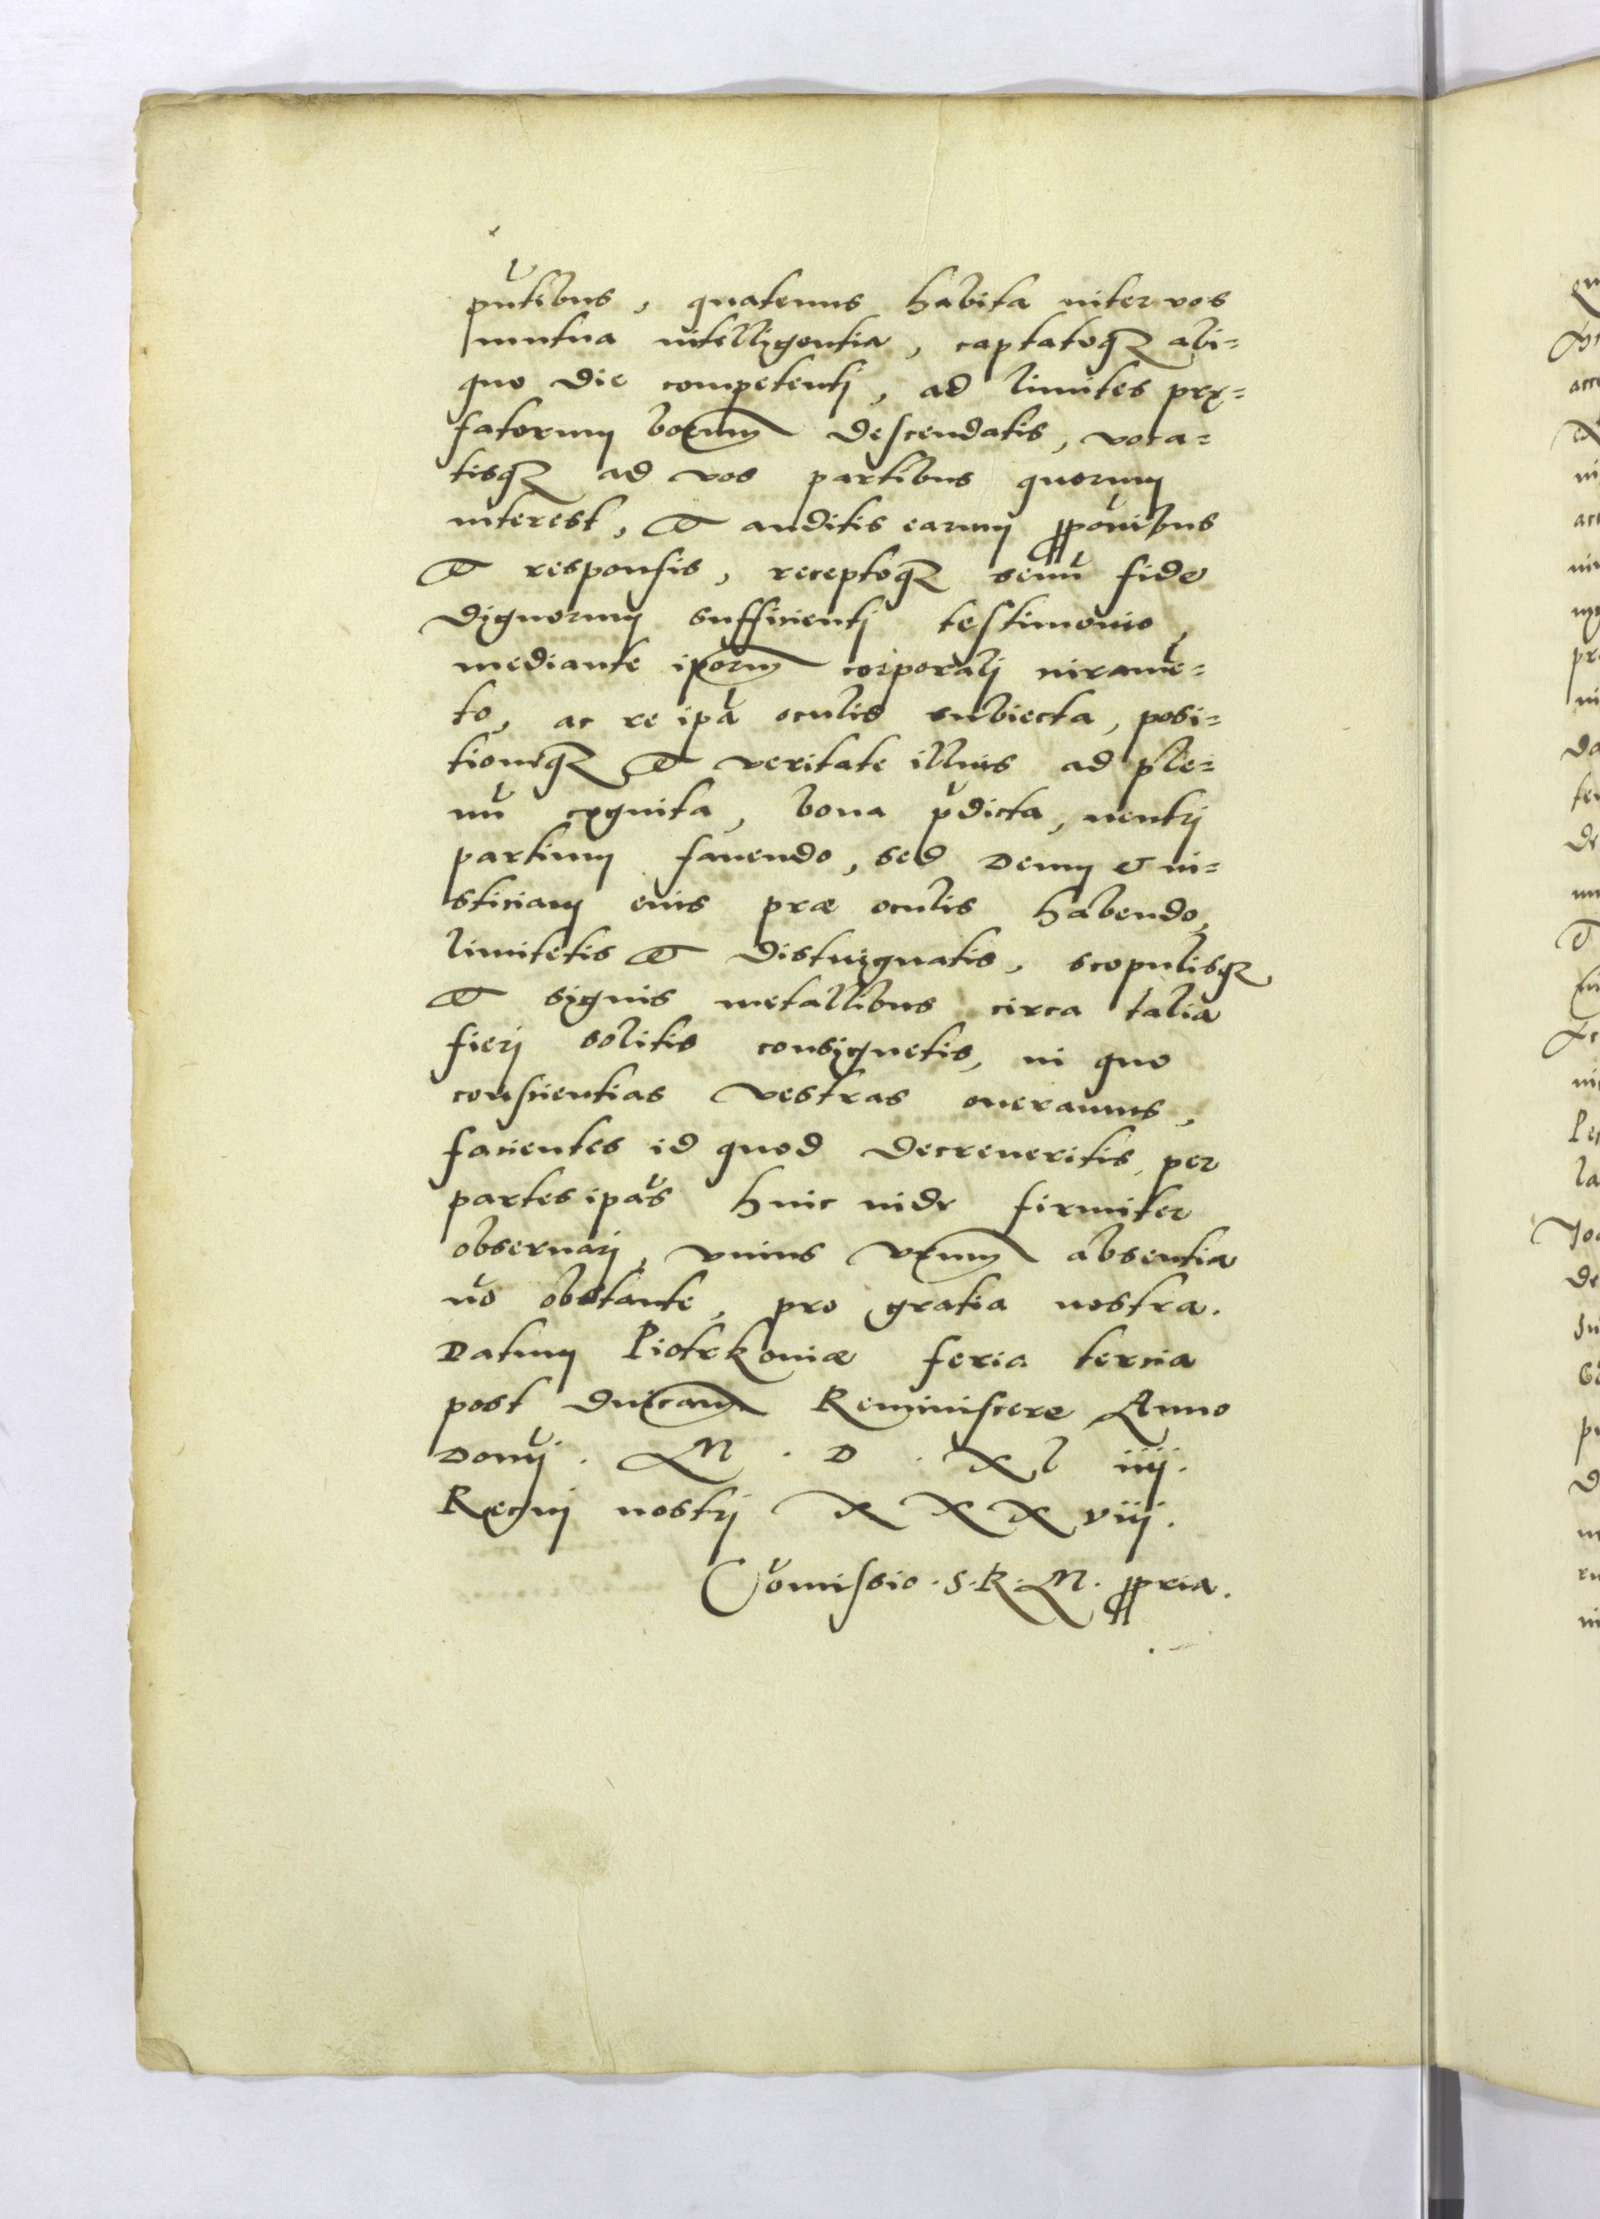 pñtibus, quatenus habita inter vos
mutua intelligentia, captatoq3 ali-
quo die competentj, ad limites prę-
fatorum bonorum descendatis, voca-
tisq3 ad vos partibus quorum
interest, et auditis earum ꝓpōnibus
et responsis, receptoq3 senū fide
dignorum sufficientj testimonio,
mediante ipõrum corporalj iuramē-
to, ac re ipā oculis subiecta, posi-
tioneq3 et veritate illius ad ple-
nū cognita, bona p̄dicta, neutrj
partium fauendo, sed Deum & iu-
sticiam eius præ oculis habendo,
limitetis et distinguatis, scopulisq3
et signis metallibus circa talia
fierj solitis consignetis, in quo
conscientias vestras oneramus,
facientes id quod decreueritis, per
partes ipās hinc inde firmiter
obseruarj, vnius vrūm absentia
nō obstante, pro gratia nostra.
Datum Piotrkouiæ feria tercia
post dnicam Reminiscere Anno
Domj̄. M. D. Xl iiij.
Regnj nostrj XXXviij.
Cōmissio. S. R. M. ꝓpria.